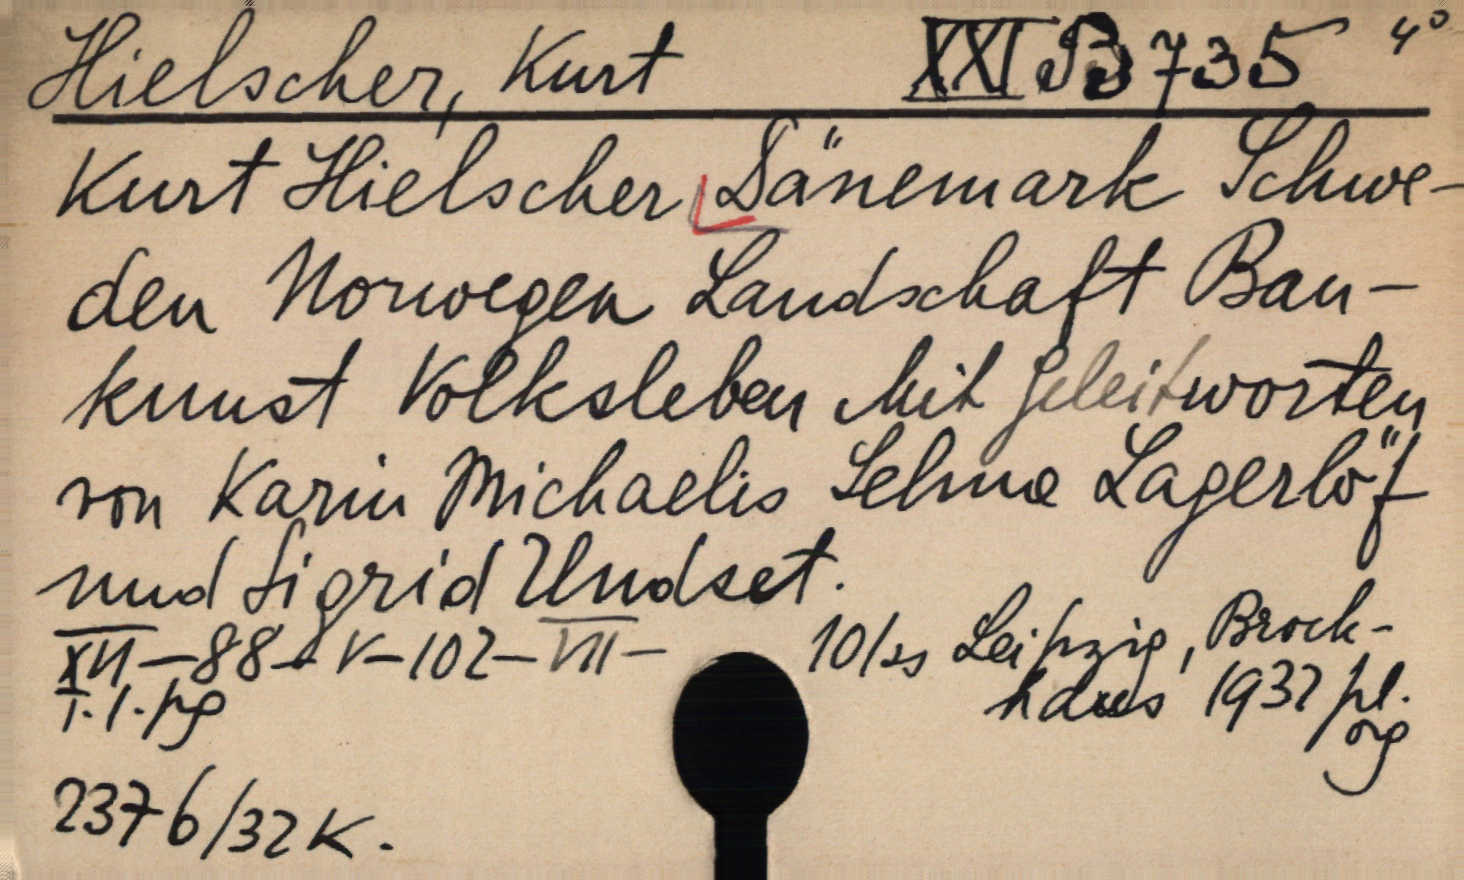 Hielscher, Kurt XXI B 735 4°
Kurt Hielscher Dänemark Schwe-
den Norwegen Landschaft Bau-
kunst Volksleben Mit Geleitworten
von Karin Michaelis Selma Lagerlöf
und Sigrid Undset.
XII-88- V-102-VII- 10/25 Leipzig, Brock-
T. 1. pg haus 1932 pl.
org
2376/32 K.